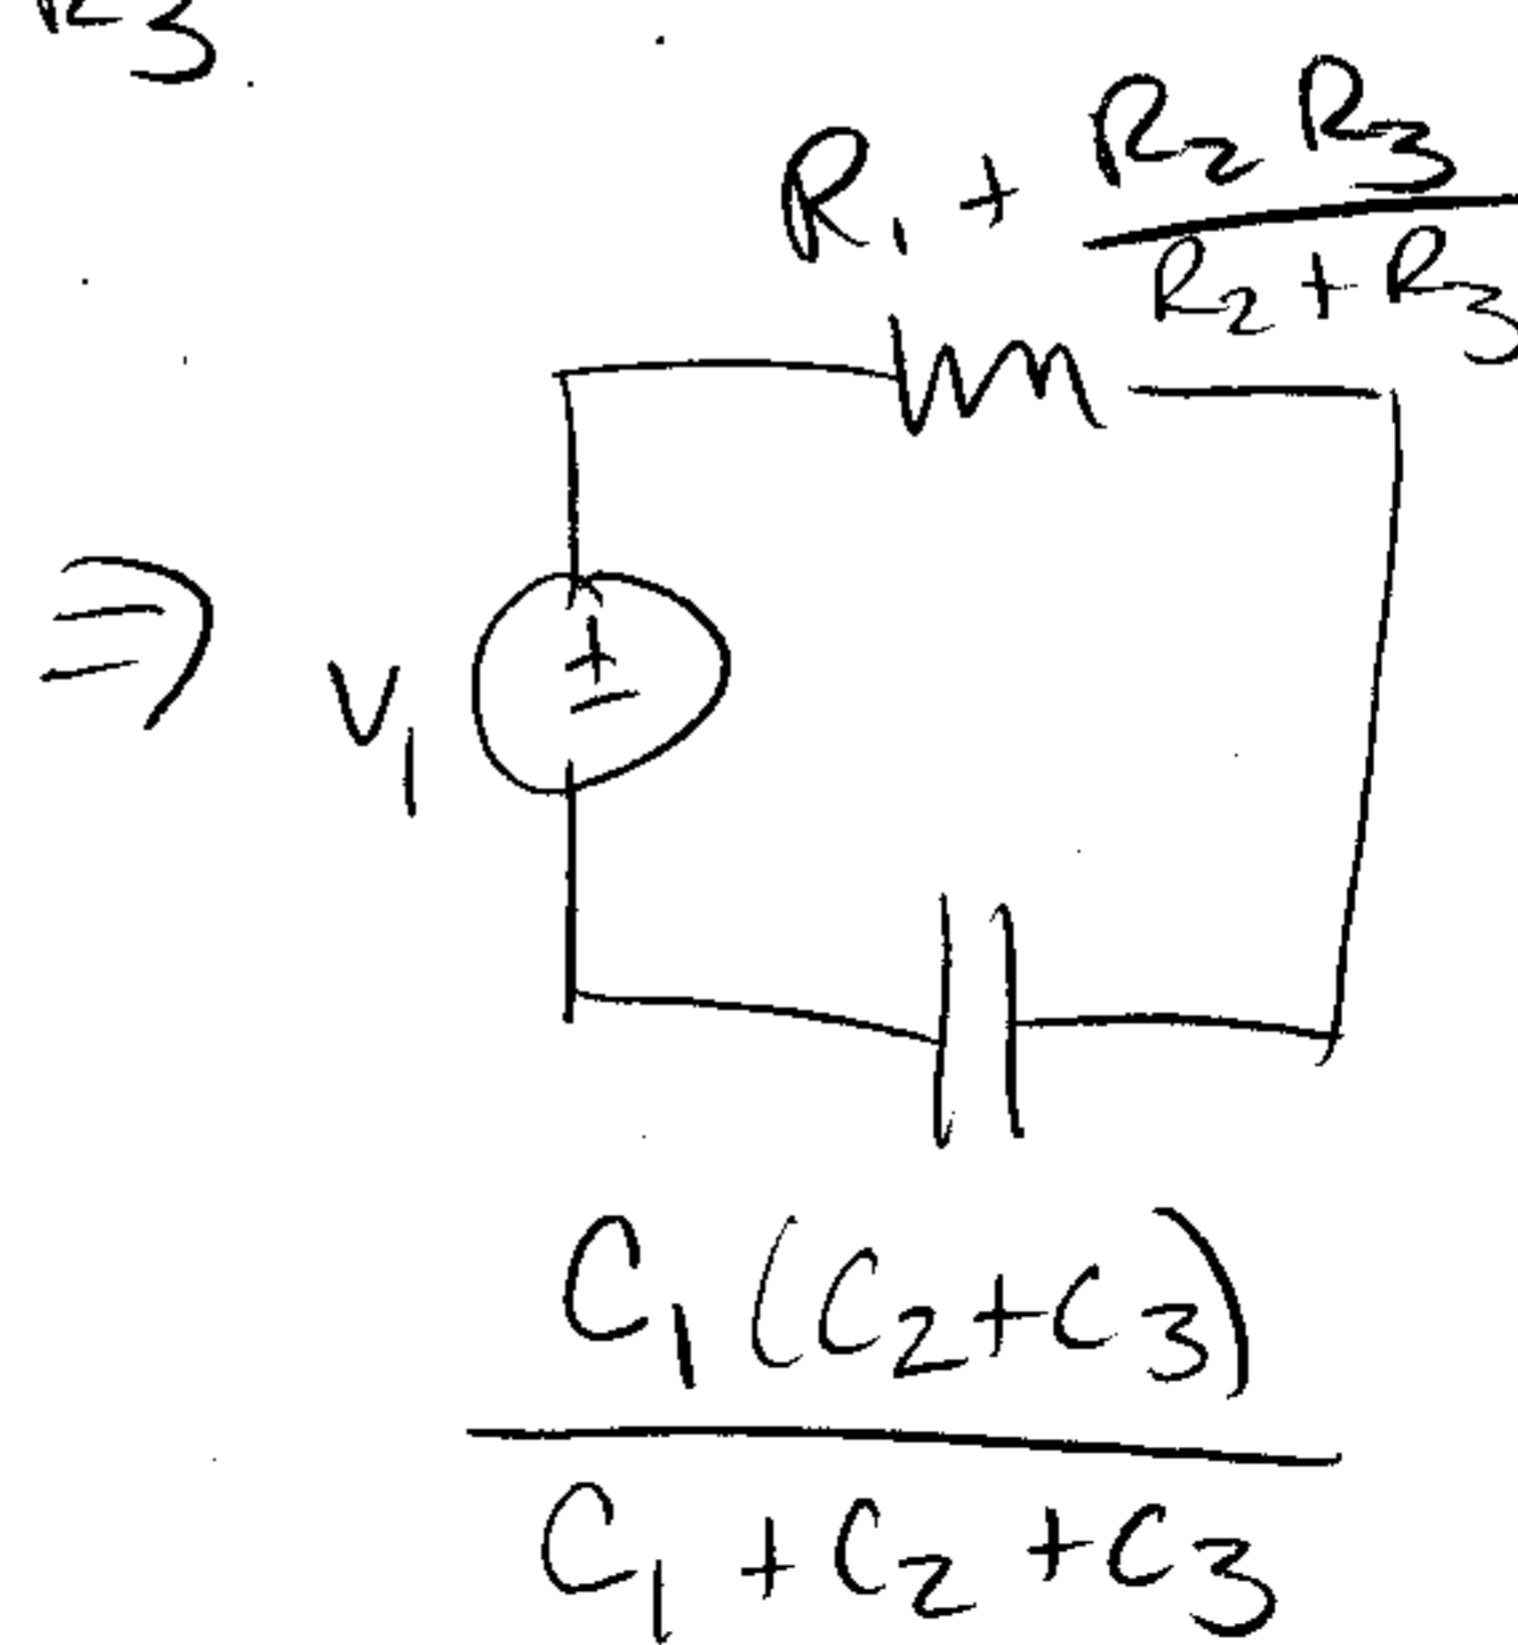 R3
R1 + R2 R3
R2 + R3
⇒ V1 + −
C1 (C2+C3)
C1 + C2 + C3